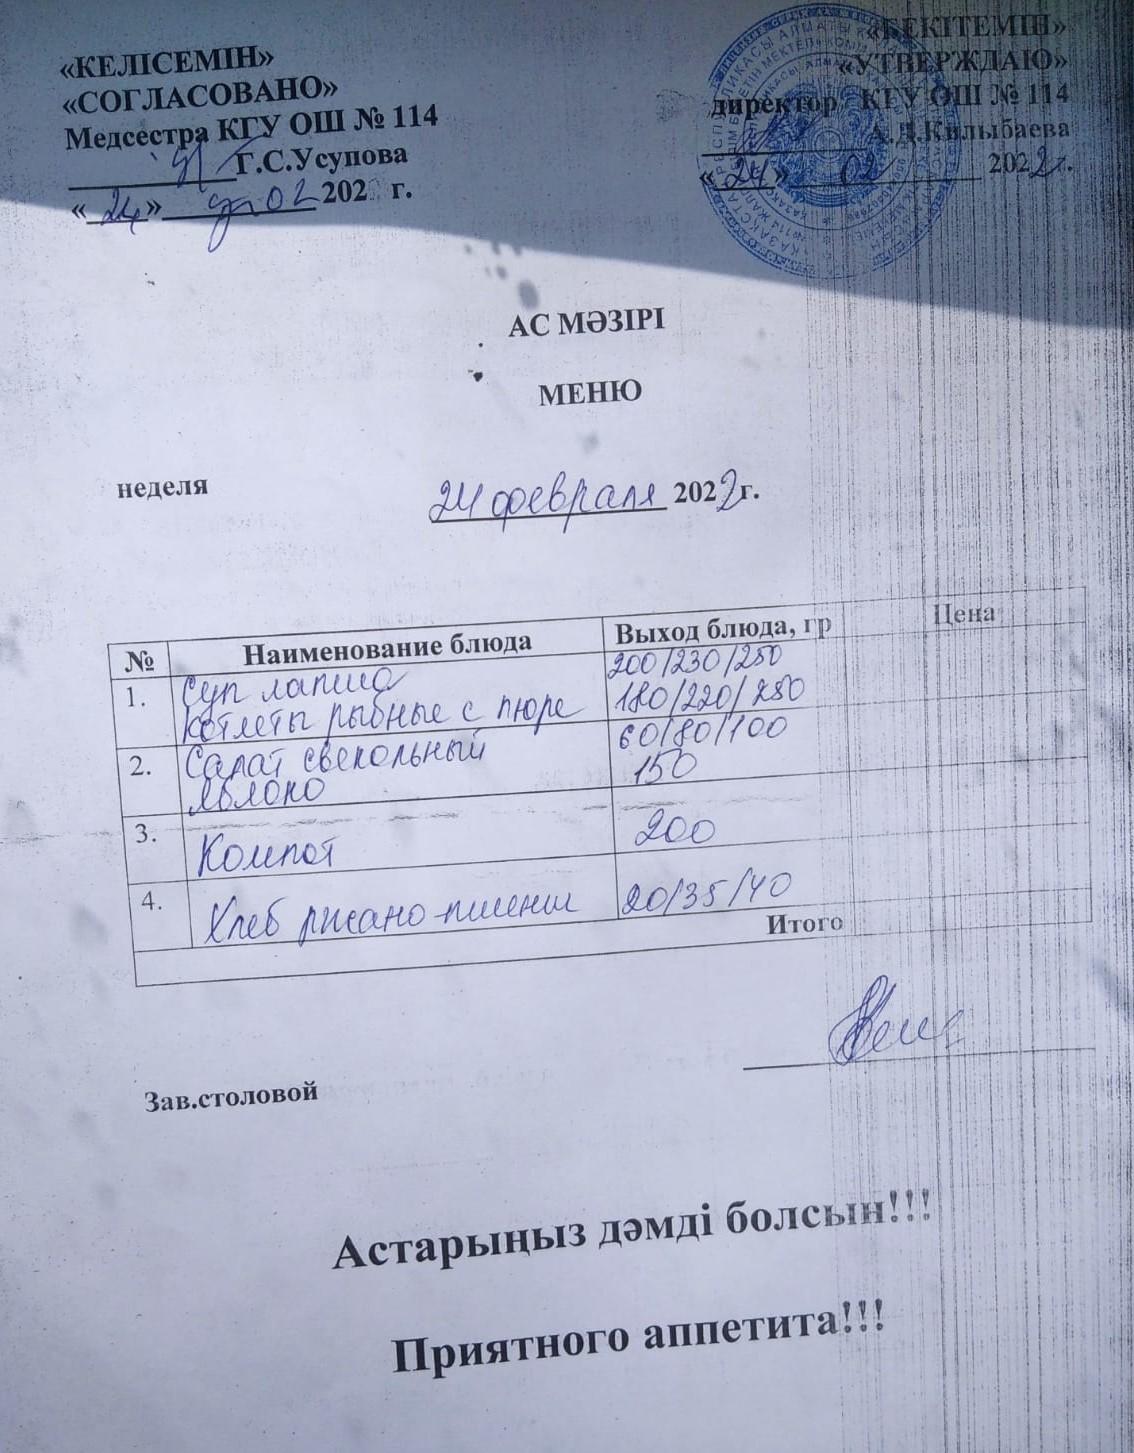 «КЕЛІСЕМІН»
«СОГЛАСОВАНО»
Медсестра КГУ ОШ № 114
Г.С.Усупова
«24» 02 202 г.
«БЕКІТЕМІН»
«УТВЕРЖДАЮ»
директор КГУ ОШ № 114
А.Д.Килыбаева
«24» 02 2022г.
АС МӘЗІРІ
МЕНЮ
неделя 24 февраля 2022г.
№ Наименование блюда Выход блюда, гр Цена
1. Суп лапша 200/230/250
Котлеты рыбные с пюре 180/220/250
2. Салат свекольный 60/80/100
яблоко 150
3. Компот 200
4. Хлеб ржано-пшенич 20/35/40
Итого
Зав.столовой
Астарыңыз дәмді болсын!!!
Приятного аппетита!!!